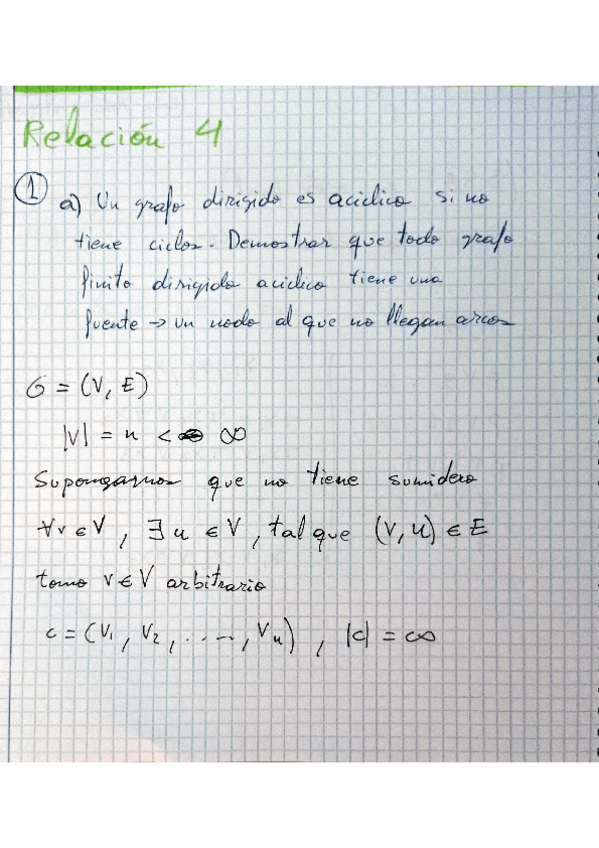 Relación 4
① a) Un grafo dirigido es acíclico si no
tiene ciclos. Demostrar que todo grafo
finito dirigido acíclico tiene una
fuente → un nodo al que no llegan arcos
G = (V, E)
|V| = n < ∞
Supongamos que no tiene sumidero
∀v ∈ V, ∃ u ∈ V, tal que (v, u) ∈ E
tomo v ∈ V arbitrario
c = (v₁, v₂, ....., vₙ), |c| = ∞